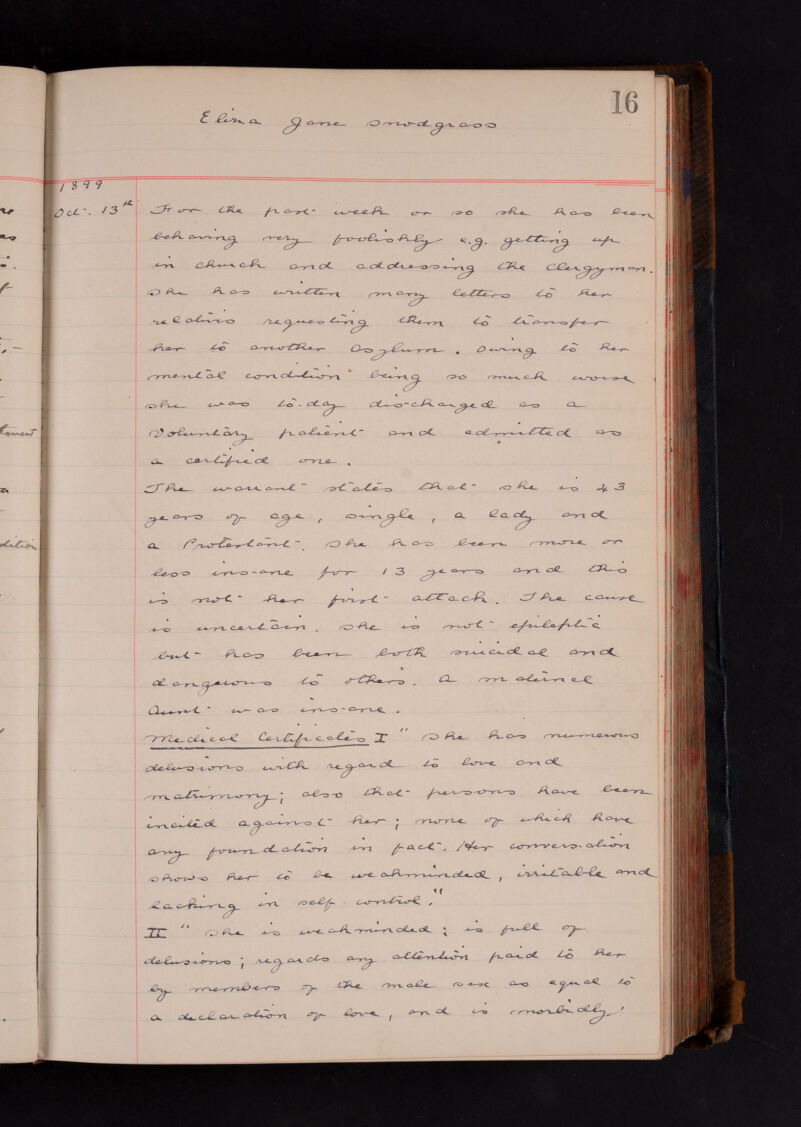 16
Eliza Jane Snodgrass
1899
Oct. 13th For the past week or so she has been
behaving very foolishly e.g. getting up
in church and addressing the Clergyman.
She has written many letters to her
relatives requesting them to transfer
her to another Asylum. Owing to her
mental condition being so much worse
she was to-day discharged as a
Voluntary patient and admitted as
a certified one.
The warrant states that she is 43
years of age, single, a lady and
a Protestant. She has been more or
less insane for 13 years and this
is not her first attack. The cause
is uncertain. She is not epileptic
but has been both suicidal and
dangerous to others. A maternal
Aunt was insane.
Medical Certificates I " She has numerous
delusions with regard to love and
matrimony; also that persons have been
incited against her; none of which have
any foundation in fact. Her conversation
shows her to be weakminded, irritable and
lacking in self control."
II " She is weakminded; is full of
delusions; regards any attention paid to her
by members of the male sex as equal to
a declaration of love, and is morbidly